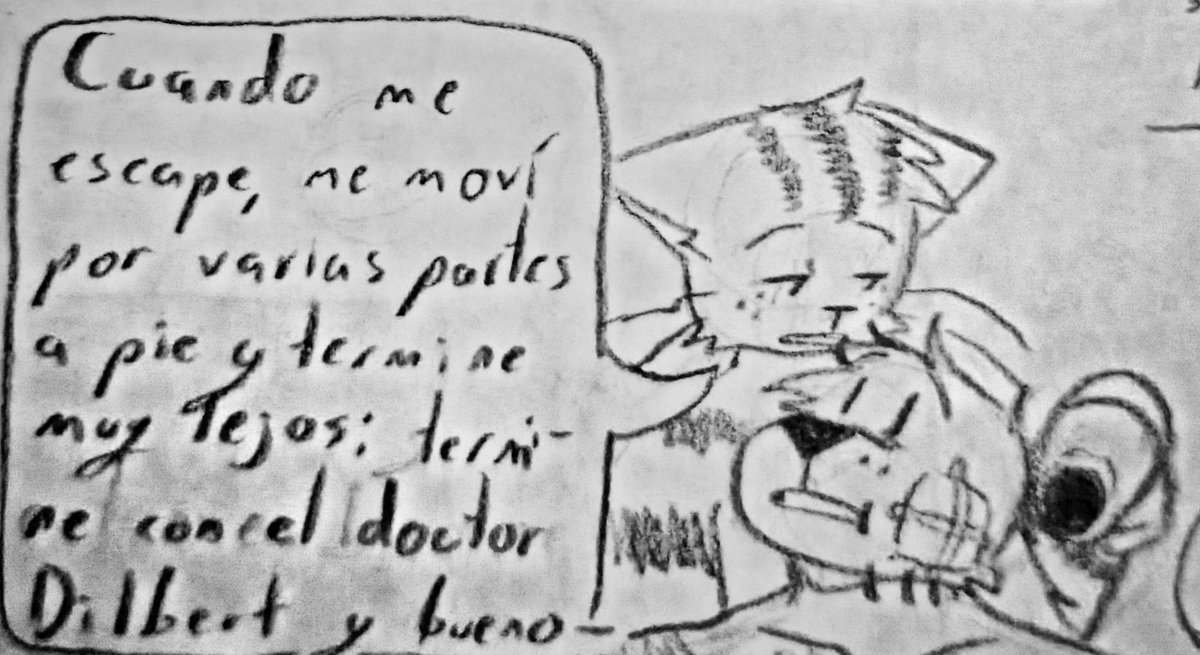 Cuando me
escape, me moví
por varias partes
a pie y termine
muy lejos; termi-
ne con el doctor
Dilbert y bueno-